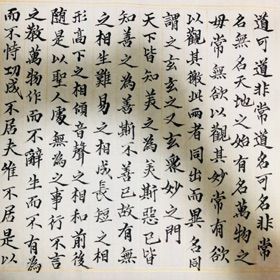 道可道非常道名可名非常
名無名天地之始有名萬物之
母常無欲以觀其妙常有欲
以觀其徼此兩者同出而異名同
謂之玄玄之又玄衆妙之門
天下皆知美之為美斯惡已皆
知善之為善斯不善已故有無
之相生難易之相成長短之相
形高下之相傾音聲之相和前後
隨是以聖人處無為之事行不言
之教萬物作而不辭生而不有為
而不恃功成不居夫唯不居是以